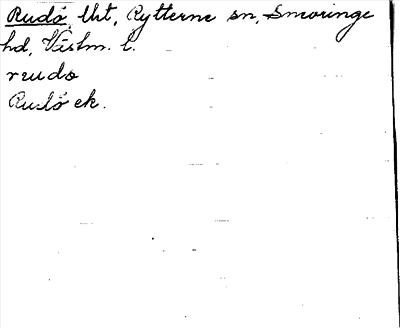 Rudö, Uht, Rytterne sn, Snevringe
hd, Västm. l.
rudo
Rudö ek.